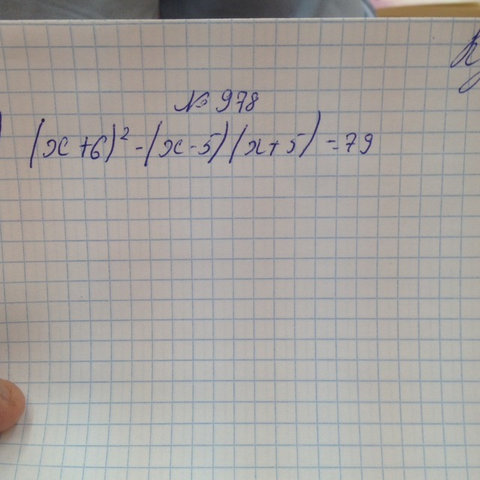 № 978
(x+6)² -(x-5)(x+5) =79